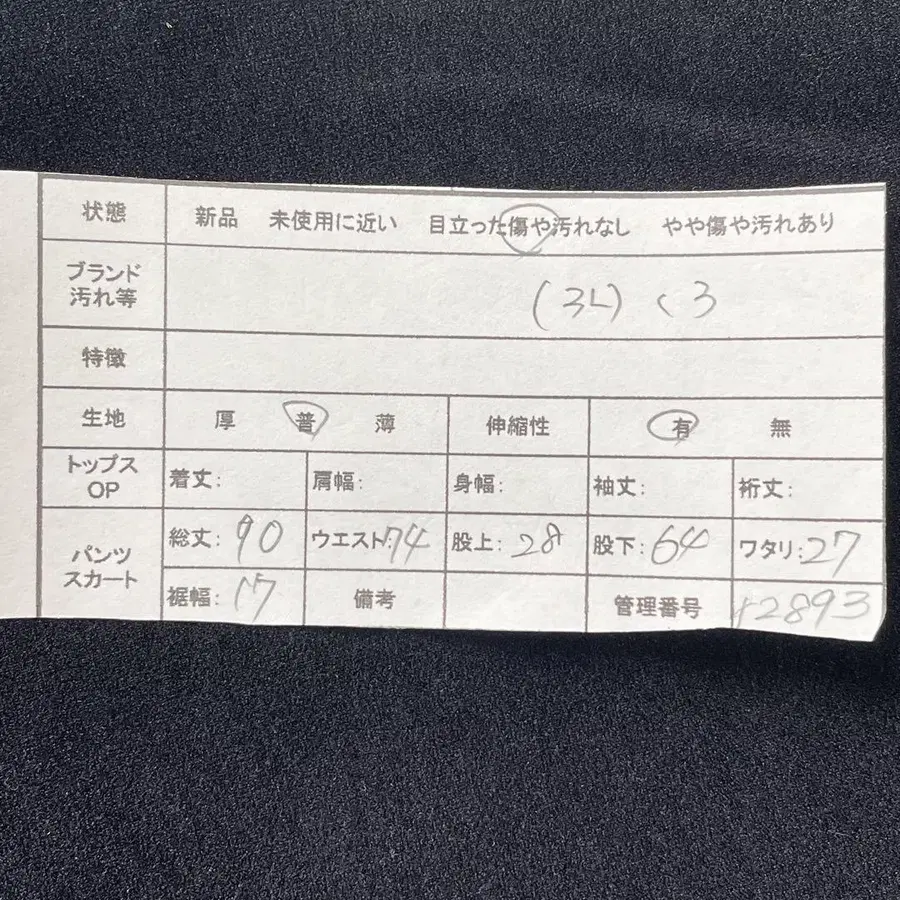 状態 新品 未使用に近い 目立った傷や汚れなし やや傷や汚れあり
ブランド
汚れ等 (3L) く3
特徴
生地 厚 普 薄 伸縮性 有 無
トップス
OP 着丈: 肩幅: 身幅: 袖丈: 裄丈:
パンツ
スカート 総丈: 90 ウエスト: 74 股上: 28 股下: 64 ワタリ: 27
裾幅: 17 備考 管理番号